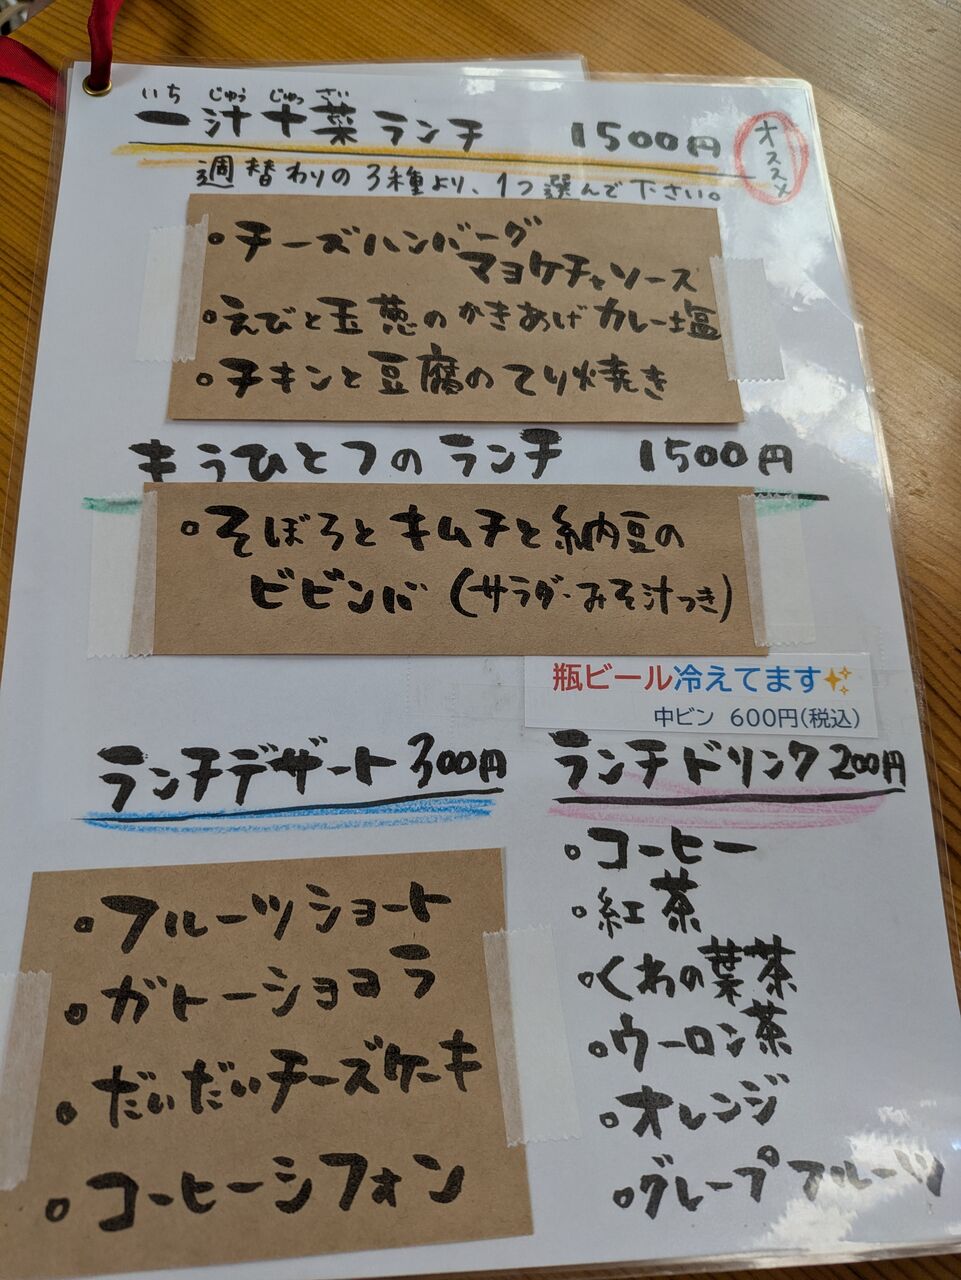 いち じゅう じゅっ さい
一汁十菜ランチ 1500円 オススメ
週替わりの3種より、1つ選んで下さい。
・チーズハンバーグ
マヨケチャソース
・えびと玉葱のかきあげカレー塩
・チキンと豆腐のてり焼き
もうひとつのランチ 1500円
・そぼろとキムチと納豆の
ビビンバ(サラダ・みそ汁つき)
瓶ビール冷えてます✨
中ビン 600円(税込)
ランチデザート 300円
・フルーツショート
・ガトーショコラ
・だいだいチーズケーキ
・コーヒーシフォン
ランチドリンク 200円
・コーヒー
・紅茶
・くわの葉茶
・ウーロン茶
・オレンジ
・グレープフルーツ